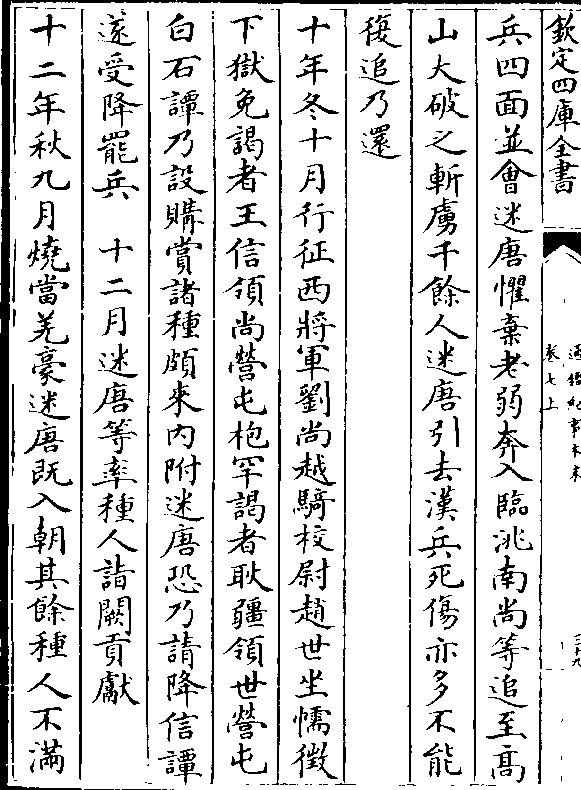 欽定四庫全書
通鑑紀事本末
卷七上
三十九
兵四面並會迷唐懼棄老弱奔入臨洮南尚等追至高
山大破之斬虜千餘人迷唐引去漢兵死傷亦多不能
復追乃還
十年冬十月行征西將軍劉尚越騎校尉趙世坐懦徵
下獄免謁者王信領尚營屯枹罕謁者耿疆領世營屯
白石譚乃設購賞諸種頗來内附迷唐恐乃請降信譚
遂受降罷兵　十二月迷唐等率種人詣闕貢獻
十二年秋九月燒當羌豪迷唐既入朝其餘種人不滿